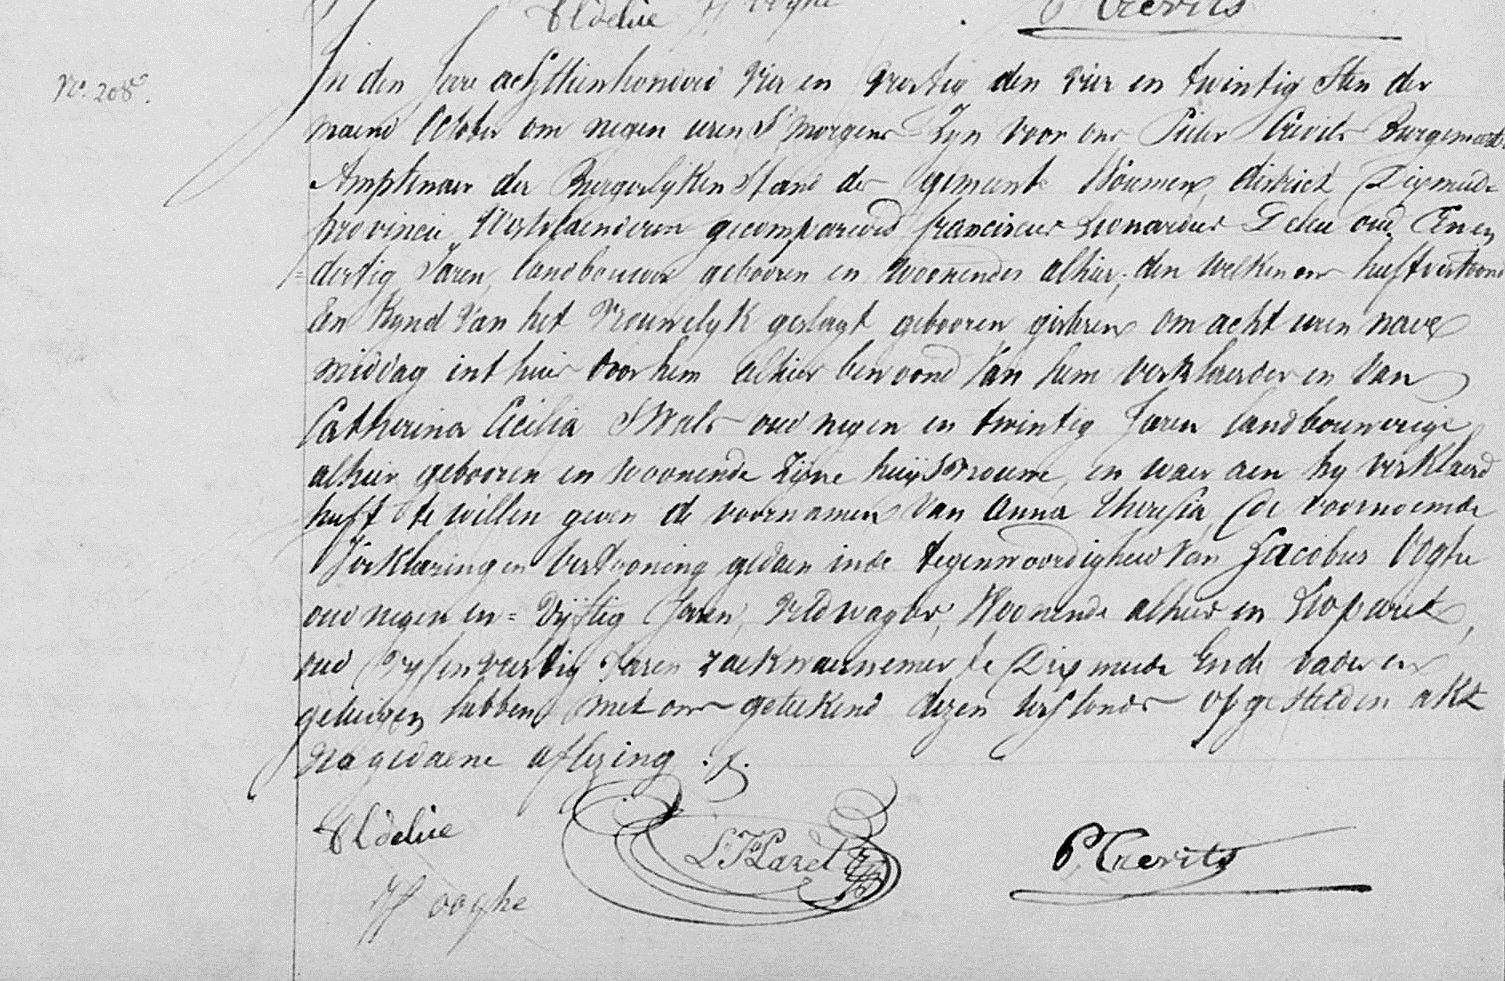 Fl delue J Hooghe P. Crevits
No. 208.
In den Jare achtthienhonderd vier en veertig den vier en twintig sten der
maend October om negen uren S'morgens Zyn voor ons Pieter Crevits Burgemeester
Amptenaer der Burgerlyken Stand der gemeente Woumen, district Dixmude
provincie Westvlaenderen gecompareerd franciscus Leonardus Delue oud Een en
dertig Jaren, landbouwer gebooren en woonende alhier, den welken ons heeft vertoond
Een Kynd van het Vrouwelyk geslagt gebooren gisteren om acht uren naer
middag int huis door hem alhier bewoond van hem verklaerder en van
Catherina Cicilia oud negen en twintig Jaren landbouwerige
alhier gebooren en woonende Zyne huysvrouwe, en waer aen hy verklaerd
heeft te willen geven de voornamen van Anna Theresia, de voornoemde
Verklaring en Vertooning gedaen in de tegenwoordigheid van Jacobus Ooghe
oud negen en = Vyftig Jaren, Veldwagter, Woonende alhier en
oud Vyf en veertig Jaren zaekwaernemer te Dixmude Ende vader en
getuigen hebben met ons getekend dezen opgestelden akt
na gedaene aflezing ./.
Fl delue
J Hooghe
P. Crevits